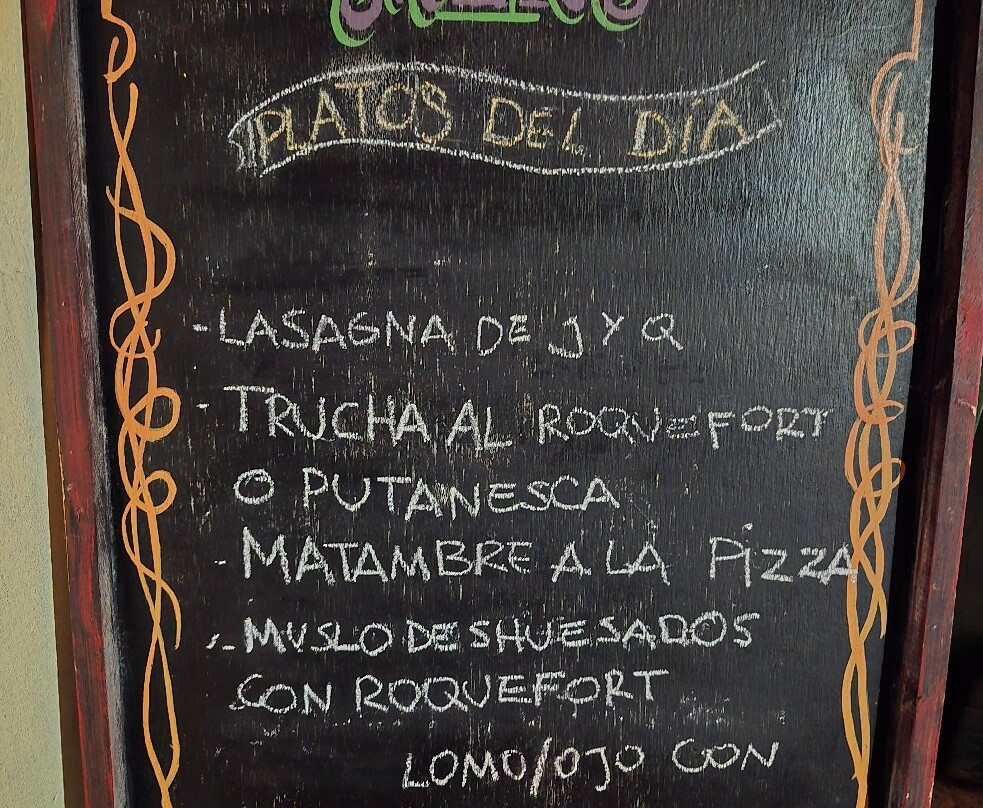 PLATOS DEL DÍA
-LASAGNA DE J Y Q
-TRUCHA AL ROQUEFORT
O PUTANESCA
-MATAMBRE A LA PIZZA
-MUSLO DESHUESADOS
CON ROQUEFORT
LOMO/OJO CON